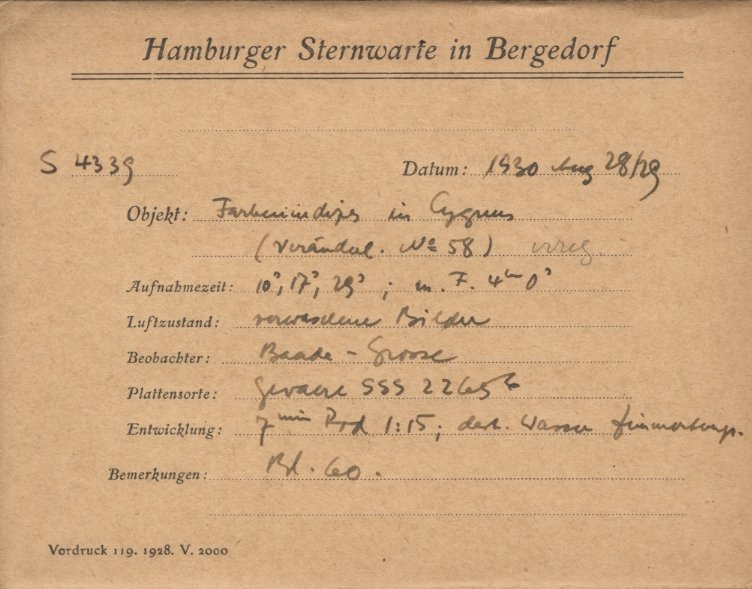 Hamburger Sternwarte in Bergedorf
S 4339 Datum: 1930 Aug 28/29
Objekt: Farbenindizes in Cygnus
(Verändl. No 58) irreg
Aufnahmezeit: 10s, 17s, 29s ; m. F. 4m 0s
Luftzustand: verwaschene Bilder
Beobachter: Baade - Grosse
Plattensorte: Gevaert SSS 2265
Entwicklung: 7 min Rod 1:15; dest. Wasser Zimmertemp.
Bemerkungen: Bl. 60.
Vordruck 119. 1928. V. 2000